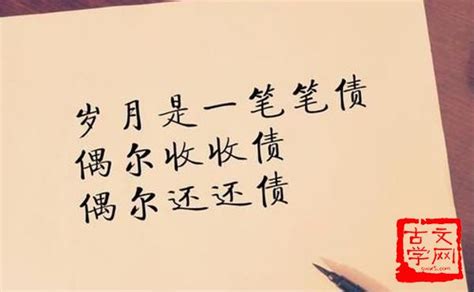 岁月是一笔笔债
偶尔收收债
偶尔还还债
古文
学网